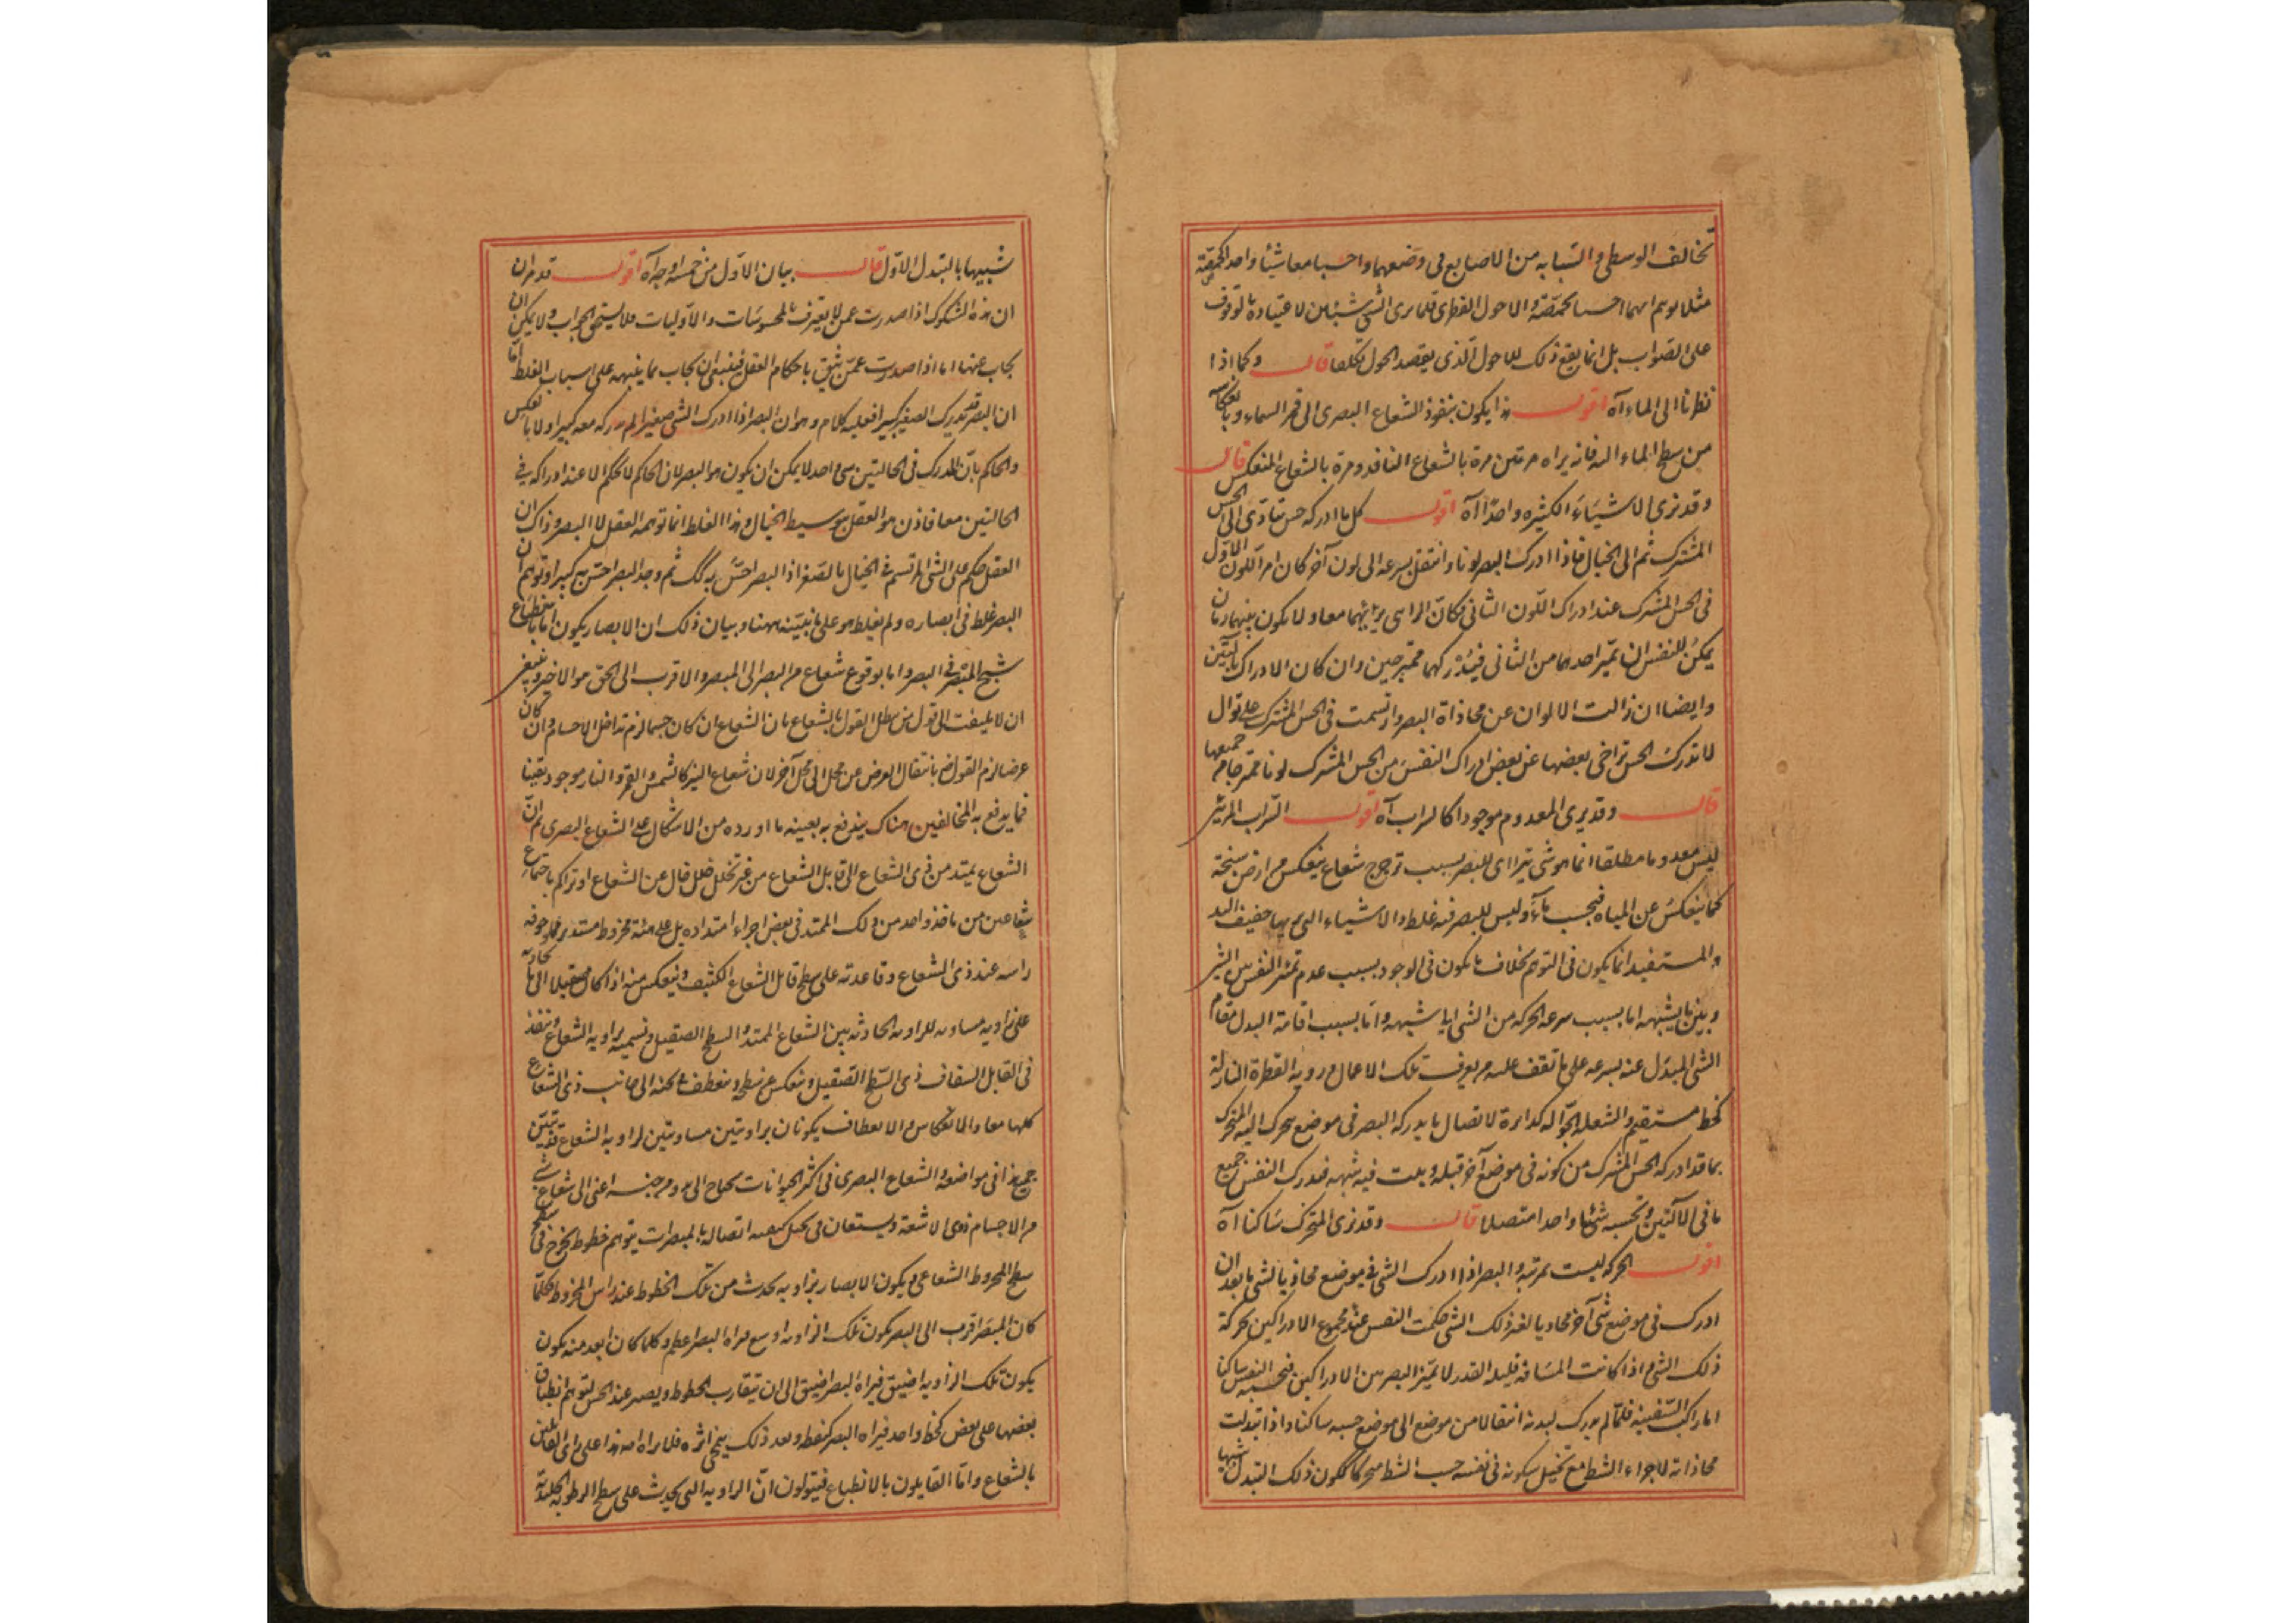 تخالف الوسطى والسبابه من الاصابع فى وضعهما واحسا معا شيئا واحدا كحمصة
مثلا توهم انهما احسا بحمصة والاحول الفطرى قلما يرى الشئ شيئين لاعتياده بالوقوف
على الصواب بل انما يقع ذلك للاحول الذى يقصد الحول تكلفا قال وكما اذا
نظرنا الى الماء آه اقول هذا يكون بنفوذ الشعاع البصرى الى قمر السماء وبانعكاسه
من سطح الماء اليه فانه يراه مرتين مرة بالشعاع النافذ ومرة بالشعاع المنعكس قال
وقد نرى الاشياء الكثيره واحدا آه اقول كل ما ادركه حس تتادى الى الحس
المشترك ثم الى الخيال فاذا ادرك البصر لونا وانتقل بسرعه الى لون آخر كان اثر اللون الاول
فى الحس المشترك عند ادراك اللون الثانى فكان الرائى يراهما معا ولا يكون بينهما زمان
يمكن للنفس ان تميز احدهما من الثانى فيدركهما ممتزجين وان كان الادراك بآلتين
وايضا ان زالت الالوان عن محاذاة البصر وارتسمت فى الحس المشترك على توال
لا تدرك الحس تراخى بعضها عن بعض ادراك النفس من الحس المشترك لونا ممتزجا من جميعها
قال وقد يرى المعدوم موجودا كالسراب آه اقول السراب المرئى
ليس معدوما مطلقا انما هو شئ يترااى للبصر بسبب ترجرج شعاع ينعكس من ارض سبخة
كما ينعكس عن المياه فيحسب ماء وليس للبصر فيه غلط والاشياء التى يريها خفيف اليد
والمستفيد انما يكون فى التوهم بخلاف ما يكون فى الوجود بسبب عدم تميز النفس بين الشئ
وبين ما يشبهه اما بسبب سرعه الحركه من الشئ الى شبهه واما بسبب اقامة البدل مقام
الشئ المبدل عنه بسرعه على ما تقف عليه من يعرف تلك الاعمال ورويه القطرة النازلة
كخط مستقيم والشعله الجواله كدائرة لاتصال ما يدركه البصر فى موضع يتحرك اليه المتحرك
بما قد ادركه الحس المشترك من كونه فى موضع آخر قبله وبقيت فيه شبهه فيدرك النفس جميع
ما فى الآلتين وتحسبه شيئا واحدا متصلا قال وقد نرى المتحرك ساكنا آه
اقول الحركه ليست بمرئية والبصر اذا ادرك الشئ فى موضع محاذيا لشئ ما بعد ان
ادرك فى موضع شئ آخر محاذيا لغير ذلك الشئ حكمت النفس عند مجموع الادراكين بحركة
ذلك الشئ اما اذا كانت المسافه قليله القدر لا يميز البصر بين الادراكين فتحسبه النفس ساكنا
اما راكب السفينه فلما لم يدرك لبدنه انتقالا من موضع الى موضع حسبه ساكنا واذا تبدلت
محاذاته لاجزاء الشط مع تخيل سكونه فى نفسه حسب الشط متحركا لكون ذلك التبدل شبيها
شبيها بالتبدل الاول قال بيان الاول من خمسه اوجه آه اقول قد مر ان
ان هذه الشكوك اذا صدرت عمن لا يعترف بالمحسوسات والاوليات فلا يستحق الجواب ولا يمكن ان
يجاب عنها اما اذا صدرت عمن يثق باحكام العقل فينبغى ان يجاب بما ينبهه على اسباب الغلط اما
ان البصر قد يدرك الصغير كبيرا فعليه كلام وهو ان البصر اذا ادرك الشئ صغيرا لم يدركه معه كبيرا ولا بالعكس
والحاكم بان المدرك فى الحالتين شئ واحد لا يمكن ان يكون هو البصر لان الحاكم لا يحكم الا عند ادراكه فى
الحالتين معا فاذن هو العقل بتوسيط الخيال وهذا الغلط انما توهمه العقل لا البصر وذاك ان
العقل حكم على الشئ المرتسم فى الخيال بالصغر اذا البصر احس به كذلك ثم وجد البصر احس به كبيرا وتوهم ان
البصر غلط فى ابصاره ولم يغلط هو على ما نبينه ههنا وبيان ذلك ان الابصار يكون اما بانطباع
شبح المبصر فى البصر واما بوقوع شعاع من البصر الى المبصر والاقرب الى الحق هو الاخير وينبغى
ان لا يلتفت الى قول من يبطل القول بالشعاع بان الشعاع ان كان جسما لزم تداخل الاجسام وان كان
عرضا لزم القول بانتقال العرض عن محل الى محل آخر لان شعاع النير كالشمس والقمر والنار موجود يقينا
فما يدفع به المخالفين هناك يندفع به بعينه ما اورده من الاشكال على الشعاع البصرى ثم ان
الشعاع يمتد من ذى الشعاع الى قابل الشعاع من غير تخلل خلل خال عن الشعاع او تراكم باجتماع
شعاعين من ماخذ واحد من ذلك الممتد فى بعض اجزاء امتداده بل على هيئة مخروط مستدير
راسه عند ذى الشعاع وقاعدته على سطح قابل الشعاع الكثيف وينعكس منه اذا كان صقيلا الى ما يحاذيه
على زاويه مساويه للزاويه الحادثه بين الشعاع الممتد والسطح الصقيل وتسميه بزاويه الشعاع وتنفذ
فى القابل الشفاف ذى السطح الصقيل وينعكس عن سطحه وينعطف الى جانب ذى الشعاع
كلها معا والانعكاس والانعطاف يكونان بزاويتين مساويتين لزاويه الشعاع تبين
جميع هذا فى مواضعه والشعاع البصرى فى اكثر الحيوانات يحتاج الى مدد من جنسه اعنى الى شعاع
من الاجسام ذوى الاشعة ويستعان فى تخيل كيفيه اتصاله بالمبصرات بتوهم خطوط تخرج فى سطح
سطح المخروط الشعاعى ويكون الابصار بزاويه تحدث من تلك الخطوط عند راس المخروط فكلما
كان المبصر اقرب الى البصر يكون تلك الزاويه اوسع فيراه البصر اعظم وكلما كان ابعد منه يكون
يكون تلك الزاويه اضيق فيراه البصر اضيق الى ان يتقارب الخطوط ويصير عند الحس لتوهم انطباق
بعضها على بعض كخط واحد فيراه البصر كنقطه وبعد ذلك ينمحى اثره فلا يراه اصلا هذا على راى القائلين
بالشعاع واما القايلون بالانطباع فيقولون ان الزاويه التى تحدث على سطح الرطوبه الجليديه